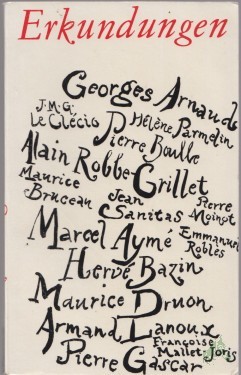 Erkundungen
Georges Arnaud
J.M.G. Le Clézio
Hélène Parmelin
Pierre Boulle
Alain Robbe-Grillet
Maurice Bruceau
Jean Sanitas
Pierre Moinot
Marcel Aymé
Emmanuel Roblès
Hervé Bazin
Maurice Druon
Armand Lanoux
Françoise Mallet-Joris
Pierre Gascar